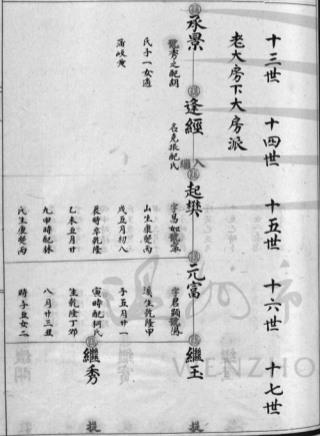 十三世 十四世 十五世 十六世 十七世
老大房下大房派
承景 逢經 起樊 元富 繼玉
號秀之配胡
氏子一女適
蒲岐黄
名克振配氏
字易如號
山生康熙丙
戌五月初八
辰時卒乾隆
乙未五月廿
九申時配林
氏生康熙丙
字君顯號
溪生乾隆甲
子五月廿一
寅時配柯氏
生乾隆丁卯
八月廿三丑
時子五女二
繼秀
WENZHO